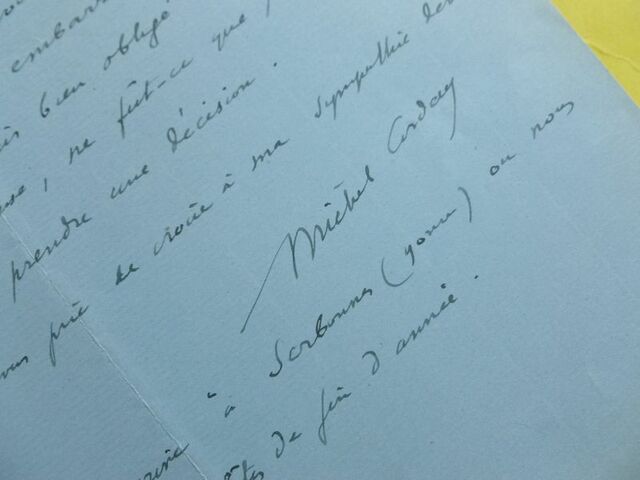 embarr
is bien obligé
, ne fût-ce que
prendre une décision.
vous prie de croire à ma sympathie
Michel Corday
à Serbonnes (Yonne) où nous
de fin d'année.